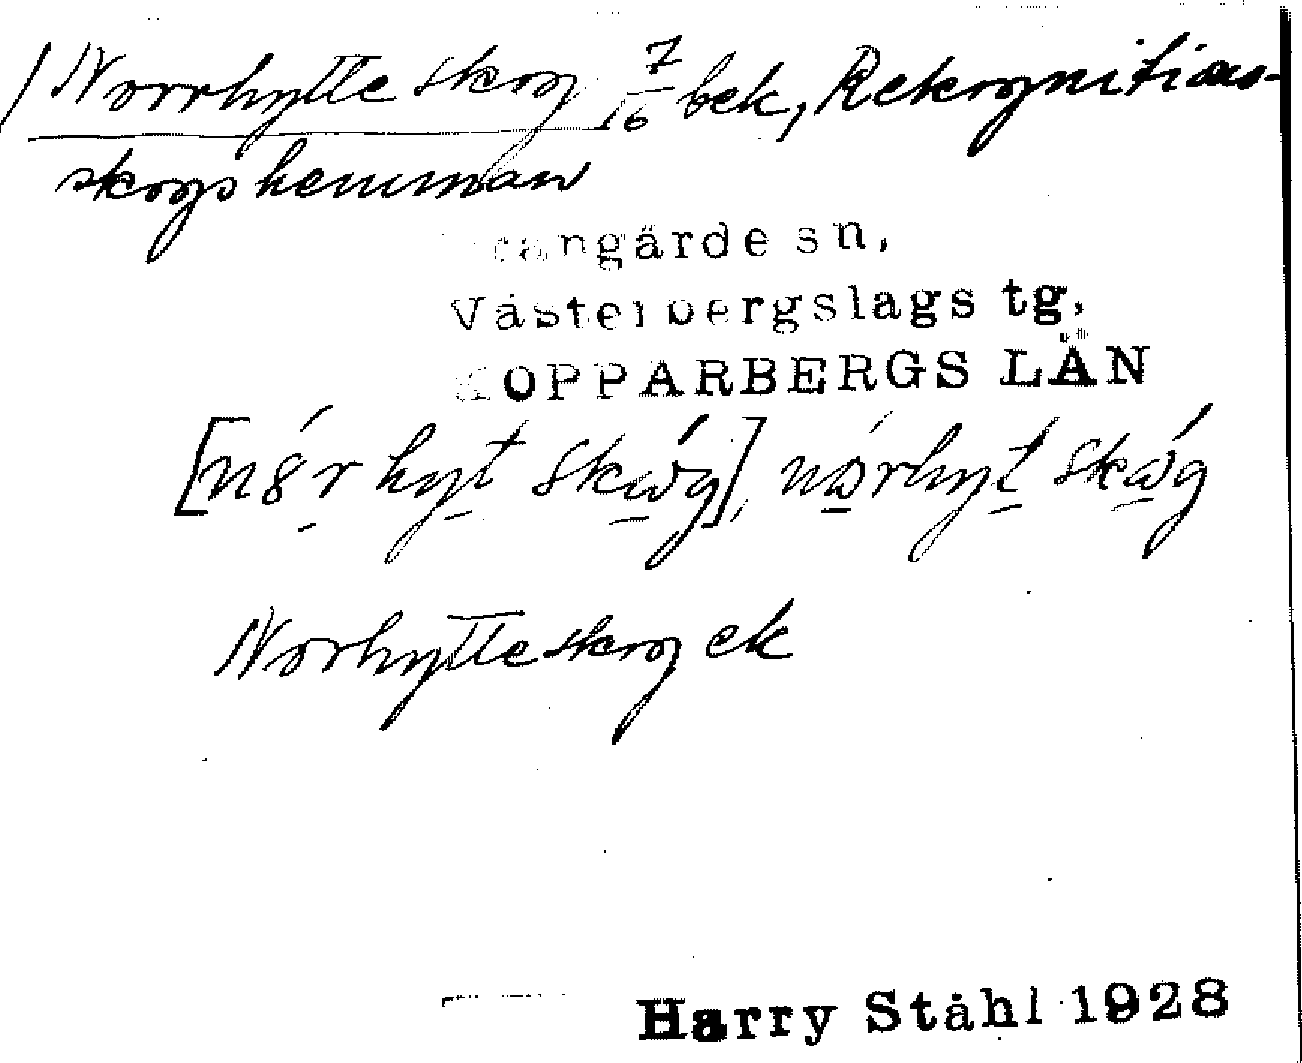 Norrhytte skog 7/16 bek, Rekognitions-
skogshemman
rangärde sn,
Västerbergslags tg,
KOPPARBERGS LÄN
Norhytteskog ek
Harry Ståhl 1928